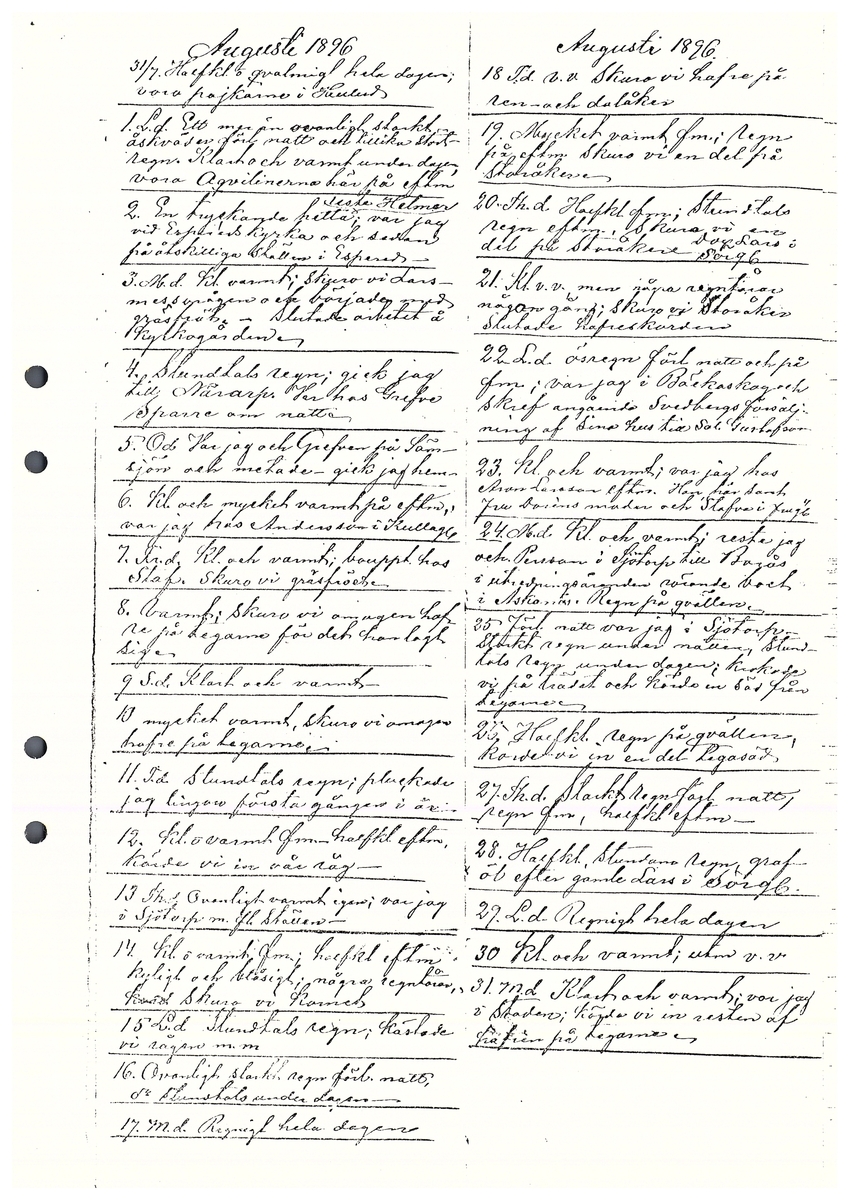 Augusti 1896
31/7. Halfkl o qvalmigt hela dagen;
voro pojkarne i
1. L.d. Ett mer än ovanligt starkt
åskväder förl. natt och tillika stort
regn. Klart och varmt under dagen,
voro Aqvilinerna här på eftm
reste Helmer
2. En tryckande hetta; var jag
vid Espereds kyrka och sedan
på åtskilliga ställen i Espered
3. M.d. Kl. varmt; skuro vi Lars-
messorågen och började med
gräsfröt. Slutade arbetet å
Kyrkogården
4. Stundtals regn; gick jag
till Närarp. Var hos Grefve
Sparre om natten
5. Od Var jag och Grefven på Säm-
sjön och metade gick jag hem
6. Kl. och mycket varmt på eftm,
var jag hos Andersson i Kullagb
7. Fr.d. Kl. och varmt; bouppt. hos
Staf. Skuro vi gräsfröet
8. Varmt; skuro vi omogen haf-
re på tegarne för det han lagt
sig
9 S.d. Klart och varmt
10 mycket varmt, skuro vi omogen
hafre på tegarne
11. T.d. Stundtals regn; plockade
jag lingon första gången i år
12. Kl. o varmt fm halfkl eftm,
körde vi in vår råg
13 Th.d Ovanligt varmt igen; var jag
i Sjötorp m. fl. ställen
14. Kl. o varmt fm; halfkl eftm
kyligt och blåsigt; några regntårar,
skuro vi kornet
15 L.d Stundtals regn; kastade
vi rågen m.m
16. Ovanligt starkt regn förl. natt,
do stundtals under dagen
17. M.d. Regnigt hela dagen
Augusti 1896
18 T.d. v.v Skuro vi hafre på
ren- och dalåker
19. Mycket varmt fm; regn
på eftm skuro vi en del på
Storåkern
20. Th.d Halfkl fm; Stundtals
regn eftm, skuro vi en
del på Storåkern Dog Lars i
Sörgb
21. Kl. v.v. men några regntårar
någon gång; skuro vi Storåker
Slutade hafreskörden
22 L.d. ösregn förl natt och på
fm; var jag i Bäckaskog och
skref angående Svedbergs försälj-
ning af sina hus till Sal. Gustafsson
23. Kl. och varmt; var jag hos
Aron Larsson eftm. Han här samt
Fru moder och Stafva i
24. M.d Kl. och varmt; reste jag
och Persson i Sjötorp till
i utredningsärenden rörande
i Askanäs. Regn på qvällen.
25 Förl natt var jag i Sjötorp
Starkt regn under natten, stund-
tals regn under dagen; krokade
vi på trädet och körde en säd från
tegarne
26 Halfkl. regn på qvällen,
körde vi in en del tegasäd
27. Th.d. Starkt regn förl natt,
regn fm, halfkl eftm
28. Halfkl, stundom regn, graf-
öl efter gamle Lars i Sörgb.
29. L.d. Regnigt hela dagen
30 Kl. och varmt; utm v.v
31. M.d Klart och varmt; var jag
i Staden; körde vi in resten af
hafren på tegarne